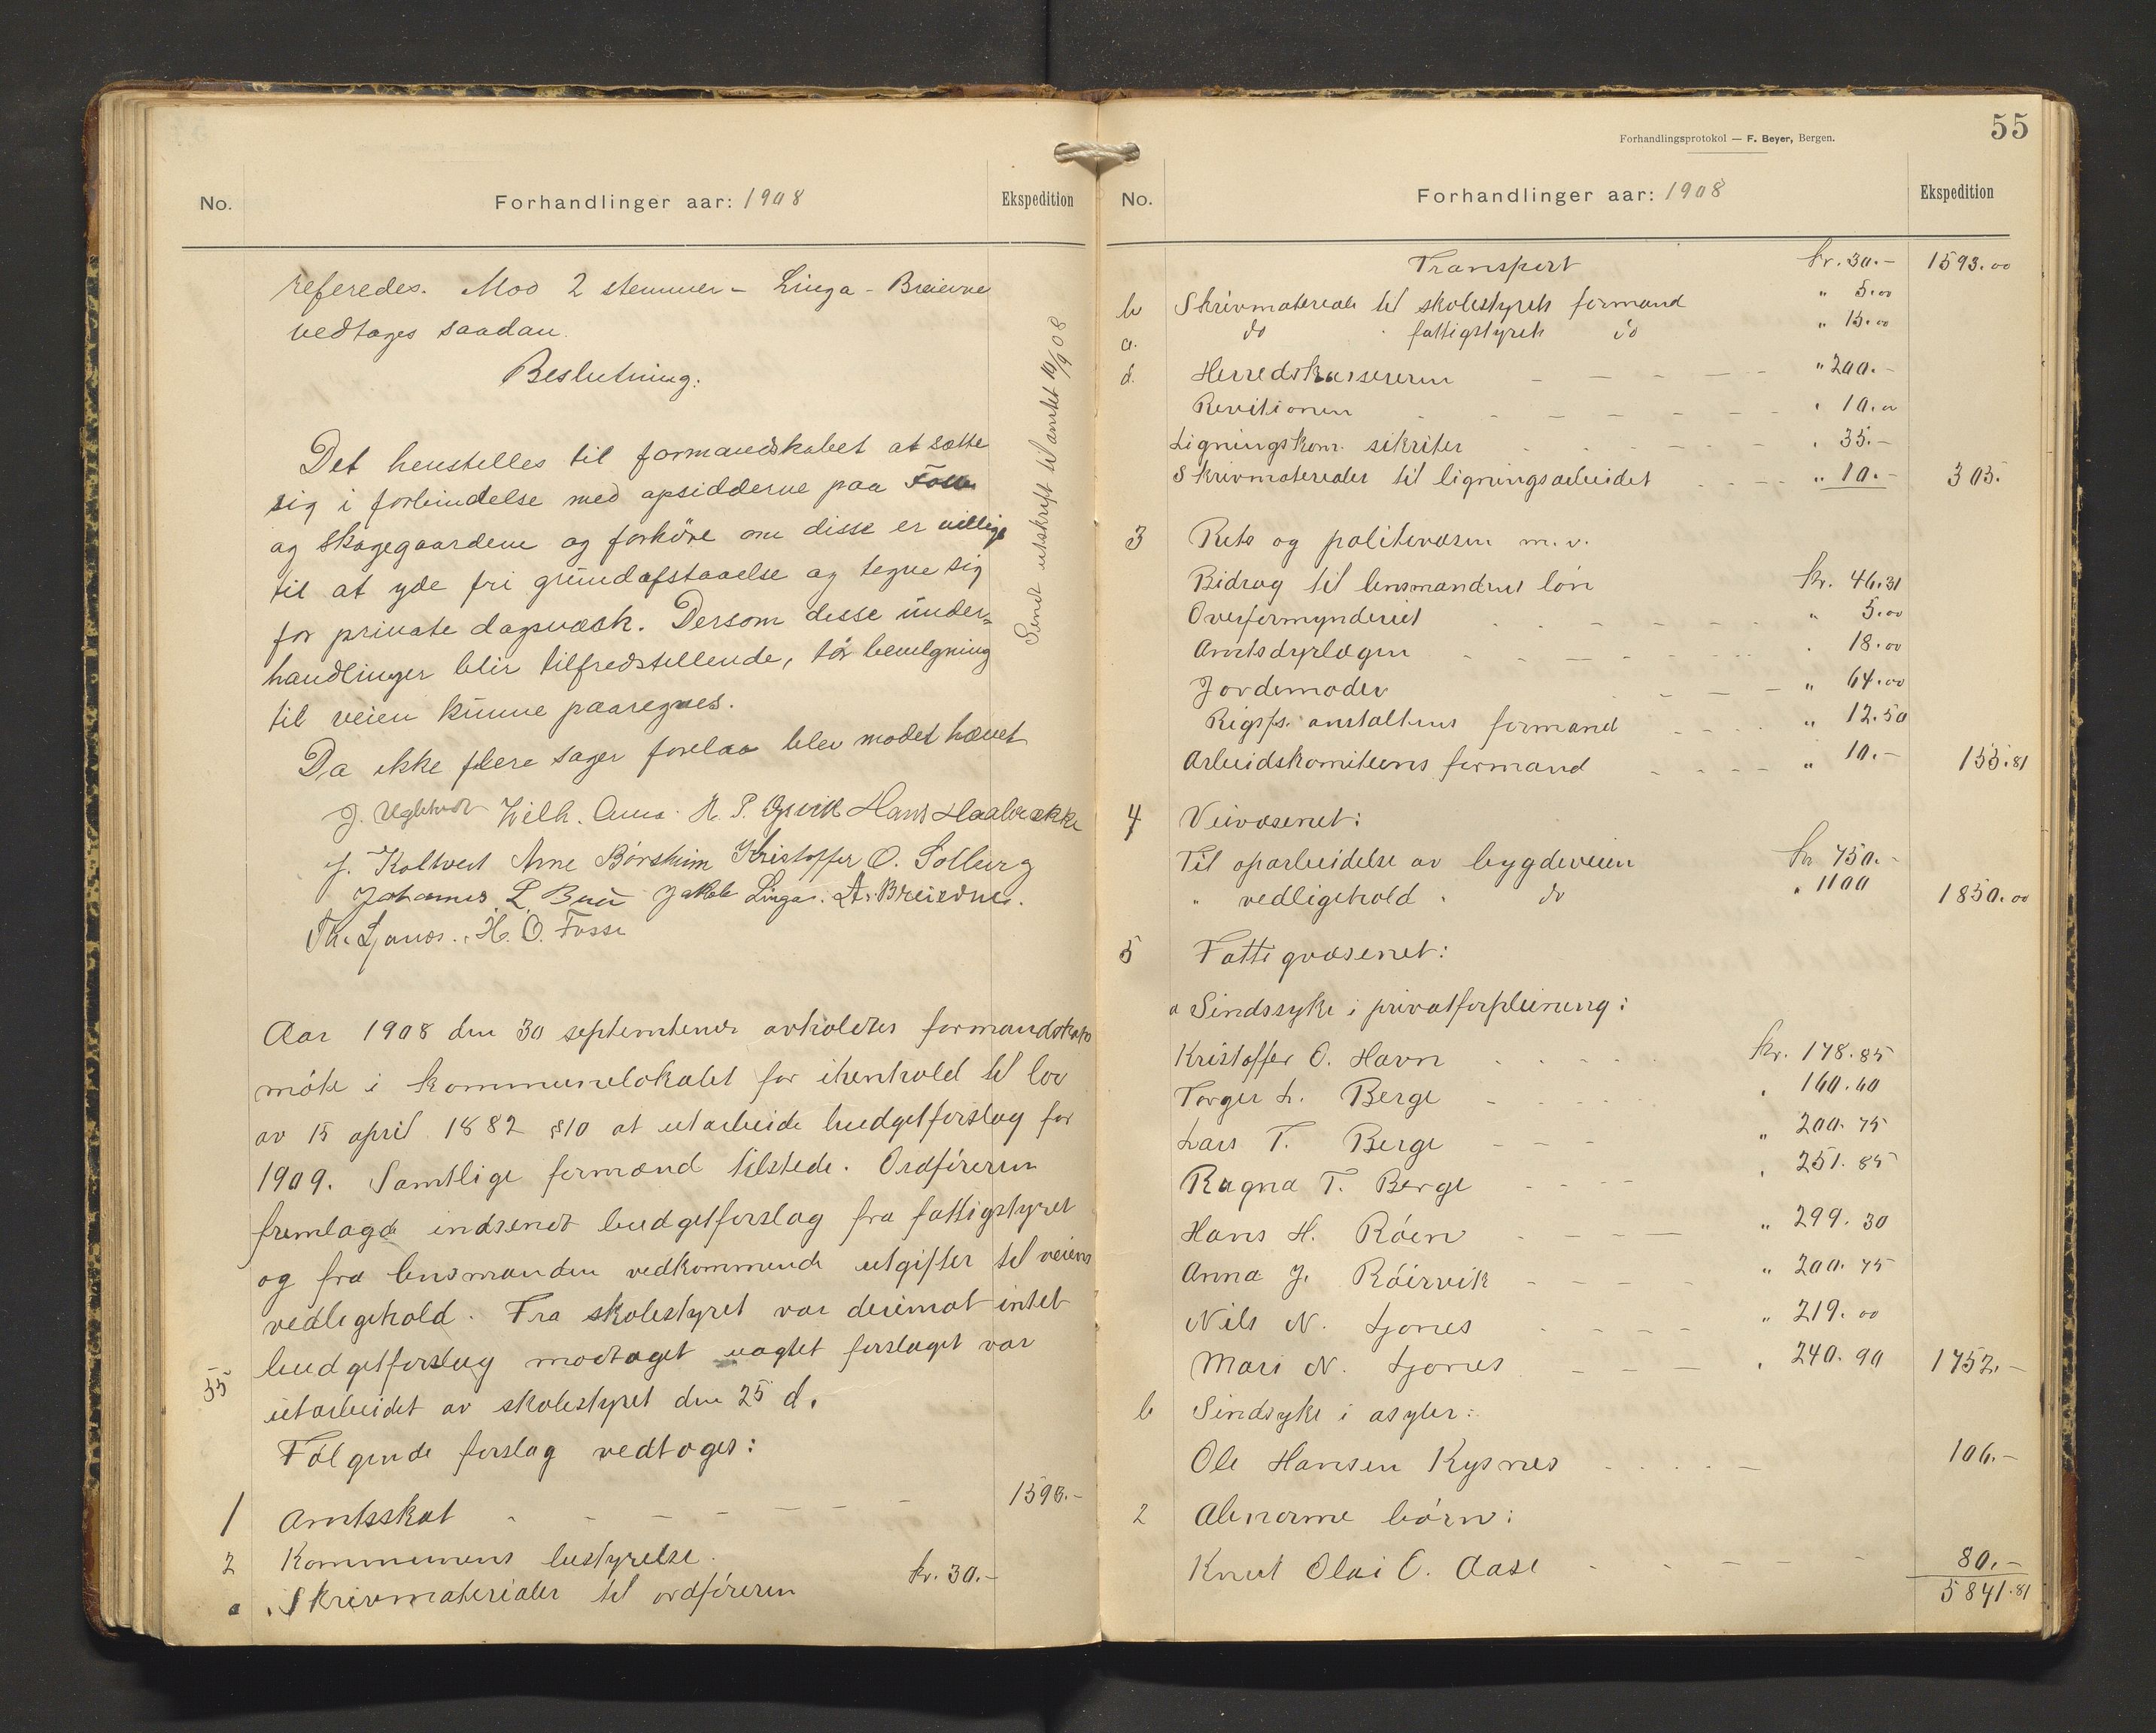 No.
Forhandlinger aar: 1908
Ekspedition
referedes. Mod 2 stemmer - Linga - Breierne
vedtages saadan.
Beslutning:
Det henstilles til formandskabet at sætte
sig i forbindelse med opsidderne paa
og Skogegaardene og forhöre om disse er villige
til at yde fri grundafstaaelse og tegne sig
for private dagsværk. Dersom disse under-
handlinger blir tilfredstellende, tör bevilgning
til veien kunne paaregnes.
Da ikke flere sager forelaa blev mødet hævet
Sendt utskrift til amtet 14/9 08
J. Wilh. H. P. Opvik Hans Haabrække
J. Koltveit Arne Börsheim Kristoffer O. Solberg
Johannes L. Jakob Linga. A. Breierne.
Th. Ljones. H. O. Fosse
Aar 1908 den 30 september avholdtes formandskaps
möte i kommunelokalet for ihenhold til lov
av 15 april 1882 §10 at utarbeide budgetforslag for
1909. Samtlige formænd tilstede. Ordföreren
fremlagde indsendt budgetforslag fra fattigstyret
og fra lensmanden vedkommende utgifter til veiens
vedligehold. Fra skolestyret var derimot intet
budgetforslag modtaget uagtet forslaget var
55
utarbeidet av skolestyret den 25 d.
Fölgende forslag vedtoges:
1 Amtsskat - - - - - 1593.-
2 Kommunens bestyrelse.
a Skrivmaterialer til ordföreren kr. 30.-
Forhandlingsprotokol — F. Beyer, Bergen.
55
No.
Forhandlinger aar: 1908
Ekspedition
Transport kr. 30.- 1593.00
b Skrivmateriale til skolestyrets formand " 5.00
c. do fattigstyrets do " 15.00
d. Herredskassereren - - - - - " 200.-
Revitionen - - - - - " 10.00
Ligningskom. sikriter - - - - " 35.-
Skrivmaterialer til ligningsarbeidet - - - " 10.- 305.
3 Rets og politivæsen m.v.
Bidrag til lensmandens lön kr. 46.31
Overformynderiet - - - - - " 5.00
Amtsdyrlægen - - - - - " 18.00
Jordemoder - - - - " 64.00
Rigsfs. anstaltens formand - - - " 12.50
Arbeidskomiteens formand - - - - " 10.- 155.81
4 Veivæsenet:
Til oparbeidelse av bygdeveien kr 750.-
" vedligehold " do " 1100 1850.00
5 Fattigvæsenet:
a Sindssyke i privatforpleining:
Kristoffer O. Havn - - - - kr. 178.85
Torger L. Berge - - - - " 160.60
Lars T. Berge - - - " 200.75
Ragna T. Berge - - - - " 251.85
Hans H. Röen - - - - " 299.30
Anna J. Röirvik - - - - " 200.75
Nils N. Ljones - - - - " 219.00
Mari N. Ljones - - - " 240.90 1752.-
b Sindsyke i asyler:
Ole Hansen Kysnes - - - - 106.-
2 Abnorme börn:
Knut Olai O. Aase - - - - 80.-
5841.81